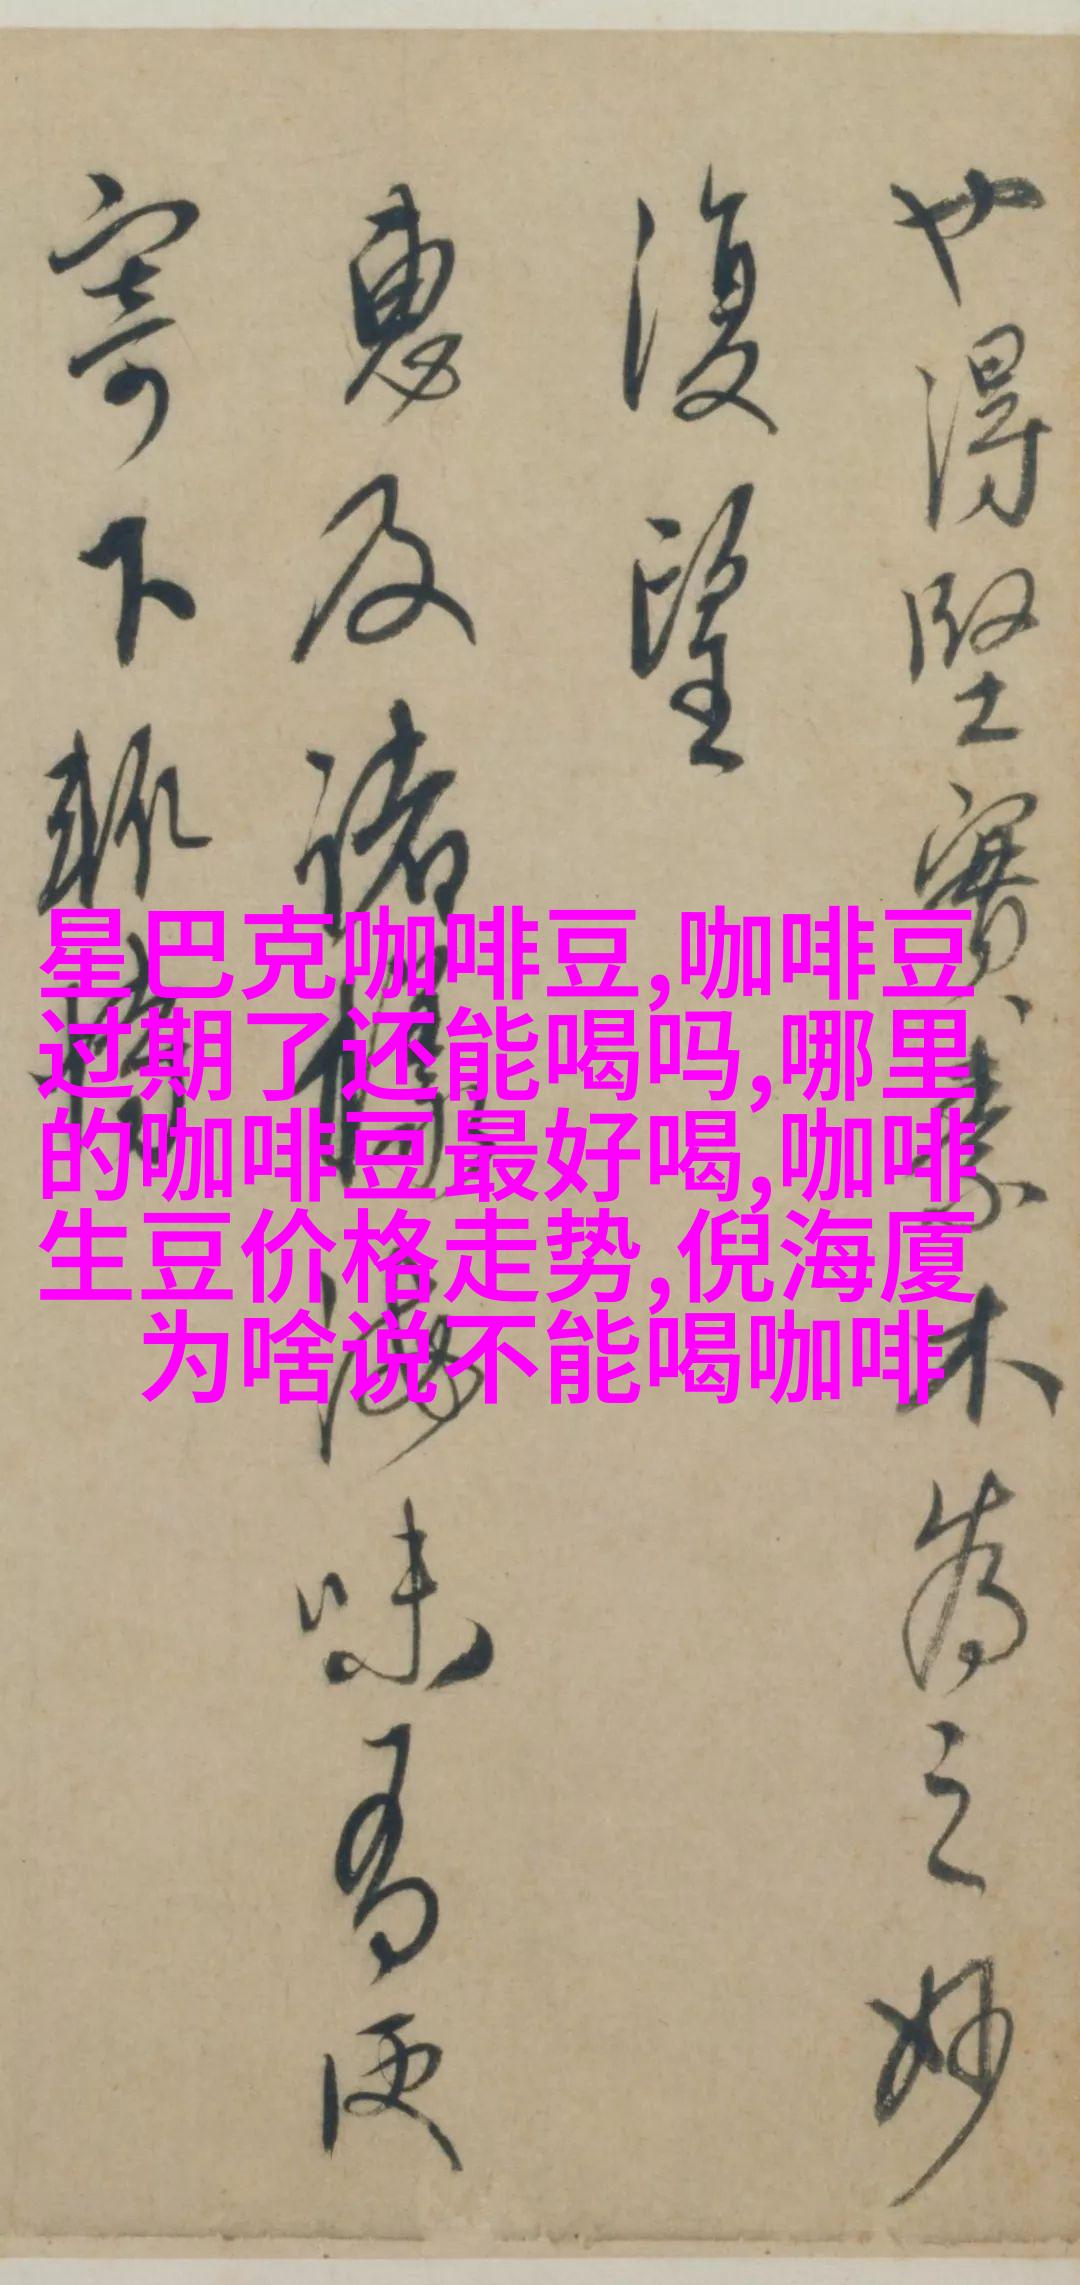 星巴克咖啡豆,咖啡豆
过期了还能喝吗,哪里
的咖啡豆最好喝,咖啡
生豆价格走势,倪海厦
为啥说不能喝咖啡
也得堅實、素木為之妙
復望
惠及諸海味有便
寄下輒